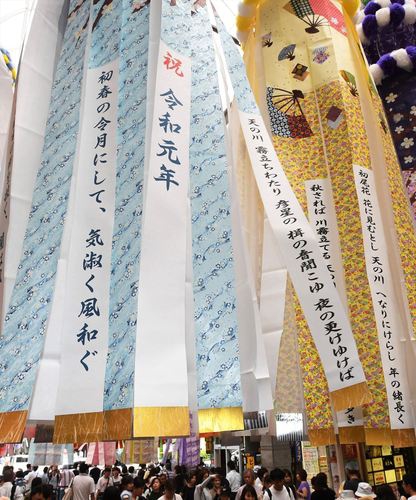 祝 令和元年
初春の令月にして、気淑く風和ぐ
天の川 霧立ちわたり 彦星の 楫の音聞こゆ 夜の更けゆけば
秋されば 川霧立てる 天の川
初尾花 花に見むとし 天の川 へなりにけらし 年の緒長く